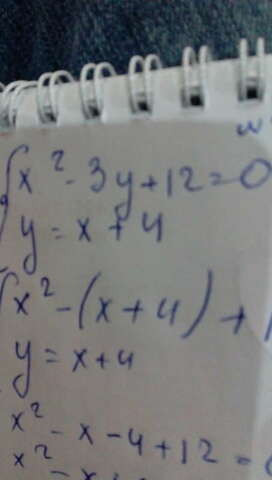 x² - 3y + 12 = 0
y = x + 4
x² - (x + 4) +
y = x + 4
x² - x - 4 + 12 =
x² - x